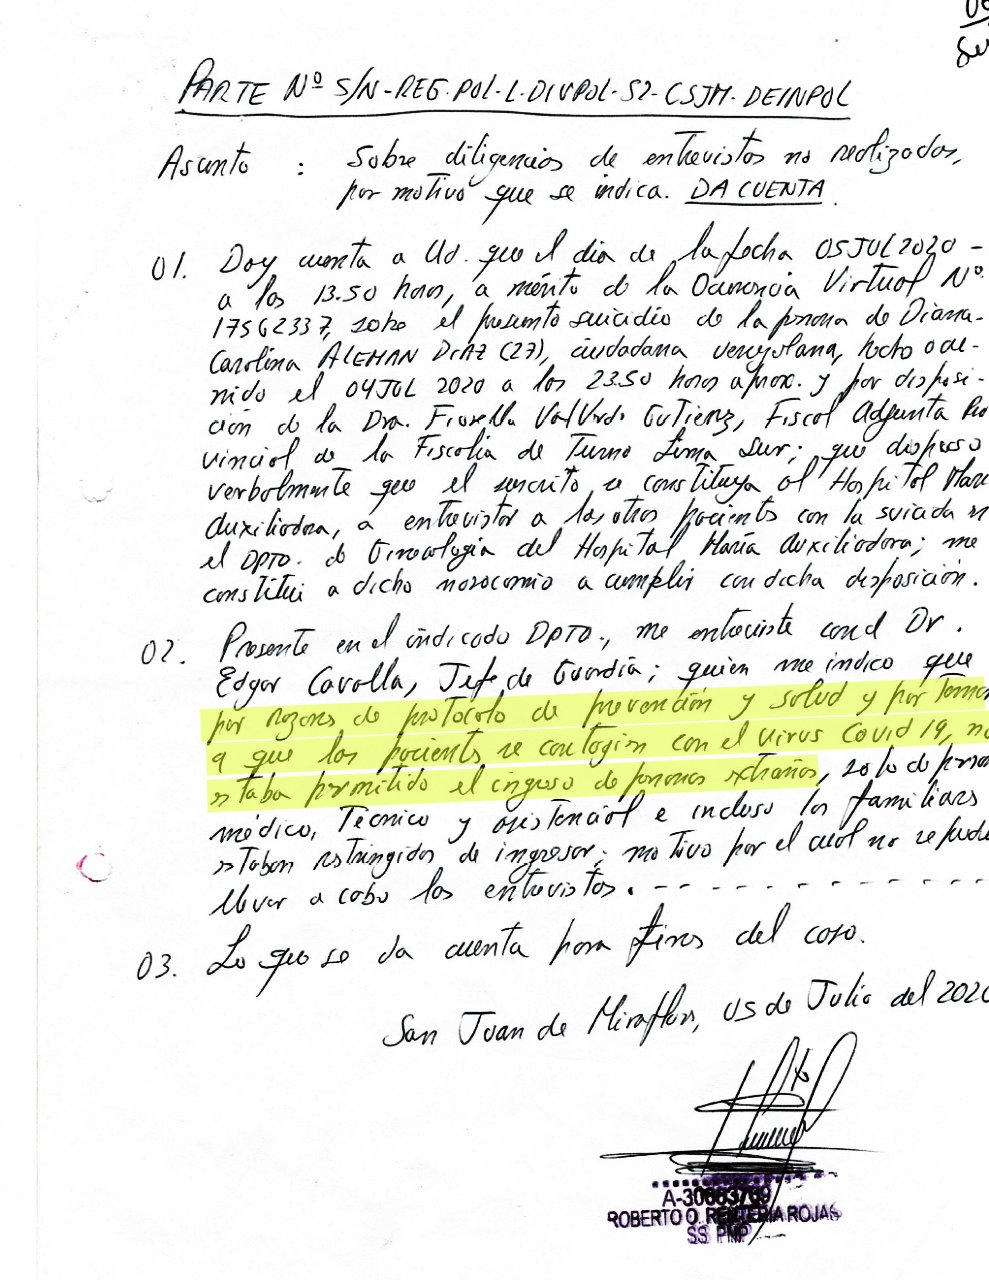 PARTE Nº S/N-REG.POL-L-DIVPOL-S2-CSJM-DEINPOL
Asunto : Sobre diligencias de entrevistas no realizadas,
por motivo que se indica. DA CUENTA
01. Doy cuenta a Ud. que el dia de la fecha 05JUL2020 -
a las 13.50 horas, a mérito de la Ocurrencia Virtual Nº
17562337, sobre el presunto suicidio de la persona de Diana
Carolina ALEMAN DIAZ (27), ciudadana venezolana, hecho ocu-
rrido el 04JUL 2020 a las 23.50 horas aprox. y por disposi-
ción de la Dra. Fiorella Valverde Gutierrez, Fiscal Adjunta Pro
vincial de la Fiscalia de Turno Lima Sur; que dispuso
verbalmente que el suscrito se constituya al Hospital Mari
Auxiliadora, a entrevistar a las otras pacients con la suicida en
el DPTO. de Ginecologia del Hospital María Auxiliadora; me
constitui a dicho nosocomio a cumplir con dicha disposición.
02. Presente en el indicado DPTO., me entreviste con el Dr.
Edgar Cavalla, Jefe de Guardia; quien me indico que
por razones de protocolo de prevención y salud y por temor
a que los pacients se contagien con el virus Covid 19, no
estaba permitido el ingreso de personas extrañas, solo de person
médico, Técnico y asistencial e incluso los familiars
estaban restringidos de ingresar; motivo por el cual no se pudo
llevar a cabo las entrevistas. - - - - - - - - - -
03. Lo que se da cuenta para fines del caso.
San Juan de Miraflores, 05 de Julio del 2020
A-30663769
ROBERTO O. RENTERIA ROJAS
SS PNP